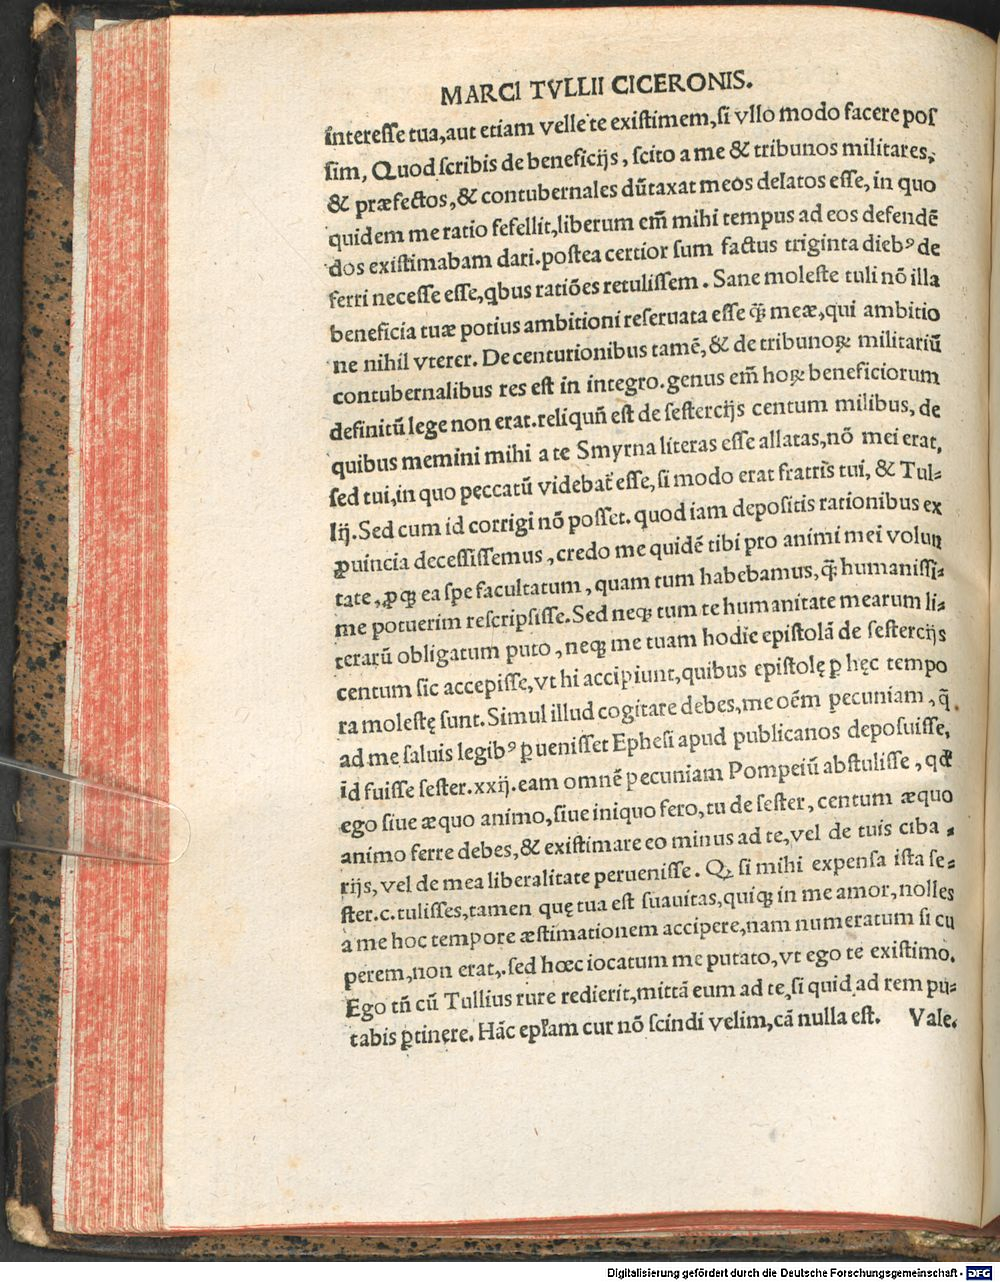 MARCI TVLLII CICERONIS.
interesse tua,aut etiam velle te existimem,si vllo modo facere pos
sim, Quod scribis de beneficijs, scito a me & tribunos militares,
& præfectos,& contubernales dũtaxat meos delatos esse, in quo
quidem me ratio fefellit,liberum em̃ mihi tempus ad eos defendẽ
dos existimabam dari.postea certior sum factus triginta diebꝰ de
ferri necesse esse,qbus ratiões retulissem. Sane moleste tuli nõ illa
beneficia tuæ potius ambitioni reseruata esse q̃ȝ meæ,qui ambitio
ne nihil vterer. De centurionibus tamẽ,& de tribunoꝝ militariũ
contubernalibus res est in integro.genus em̃ hoꝝ beneficiorum
definitũ lege non erat.reliquũ est de sestercijs centum milibus, de
quibus memini mihi a te Smyrna literas esse allatas,nõ mei erat,
sed tui,in quo peccatũ videbat̃ esse,si modo erat fratris tui, & Tul⸗
lij.Sed cum id corrigi nõ posset. quod iam depositis rationibus ex
ꝓuincia decessissemus, credo me quidẽ tibi pro animi mei volun
tate, ꝓ qȝ ea spe facultatum, quam tum habebamus,q̃ȝ humanissi⸗
me potuerim rescripsisse.Sed neqȝ tum te humanitate mearum li⸗
terarũ obligatum puto, neqȝ me tuam hodie epistolã de sestercijs
centum sic accepisse,vt hi accipiunt,quibus epistolę ꝑ hęc tempo
ra molestę sunt.Simul illud cogitare debes,me oẽm pecuniam, q̃
ad me saluis legibꝰ ꝑuenisset Ephesi apud publicanos deposuisse,
id fuisse sester.xxij.eam omnẽ pecuniam Pompeiũ abstulisse, qđ
ego siue æquo animo,siue iniquo fero,tu de sester, centum æquo
animo ferre debes,& existimare eo minus ad te,vel de tuis ciba⸗
rijs,vel de mea liberalitate peruenisse. Qꝫ si mihi expensa ista se⸗
ster.c.tulisses,tamen quę tua est suauitas,quiqȝ in me amor,nolles
a me hoc tempore æstimationem accipere,nam numeratum si cu
perem,non erat,.sed hœc iocatum me putato,vt ego te existimo.
Ego tñ cũ Tullius rure redierit,mittã eum ad te,si quid ad rem pu⸗
tabis ꝑtinere. Hãc epl̃am cur nõ scindi velim,cã nulla est. Vale.
Digitalisierung gefördert durch die Deutsche Forschungsgemeinschaft - DFG